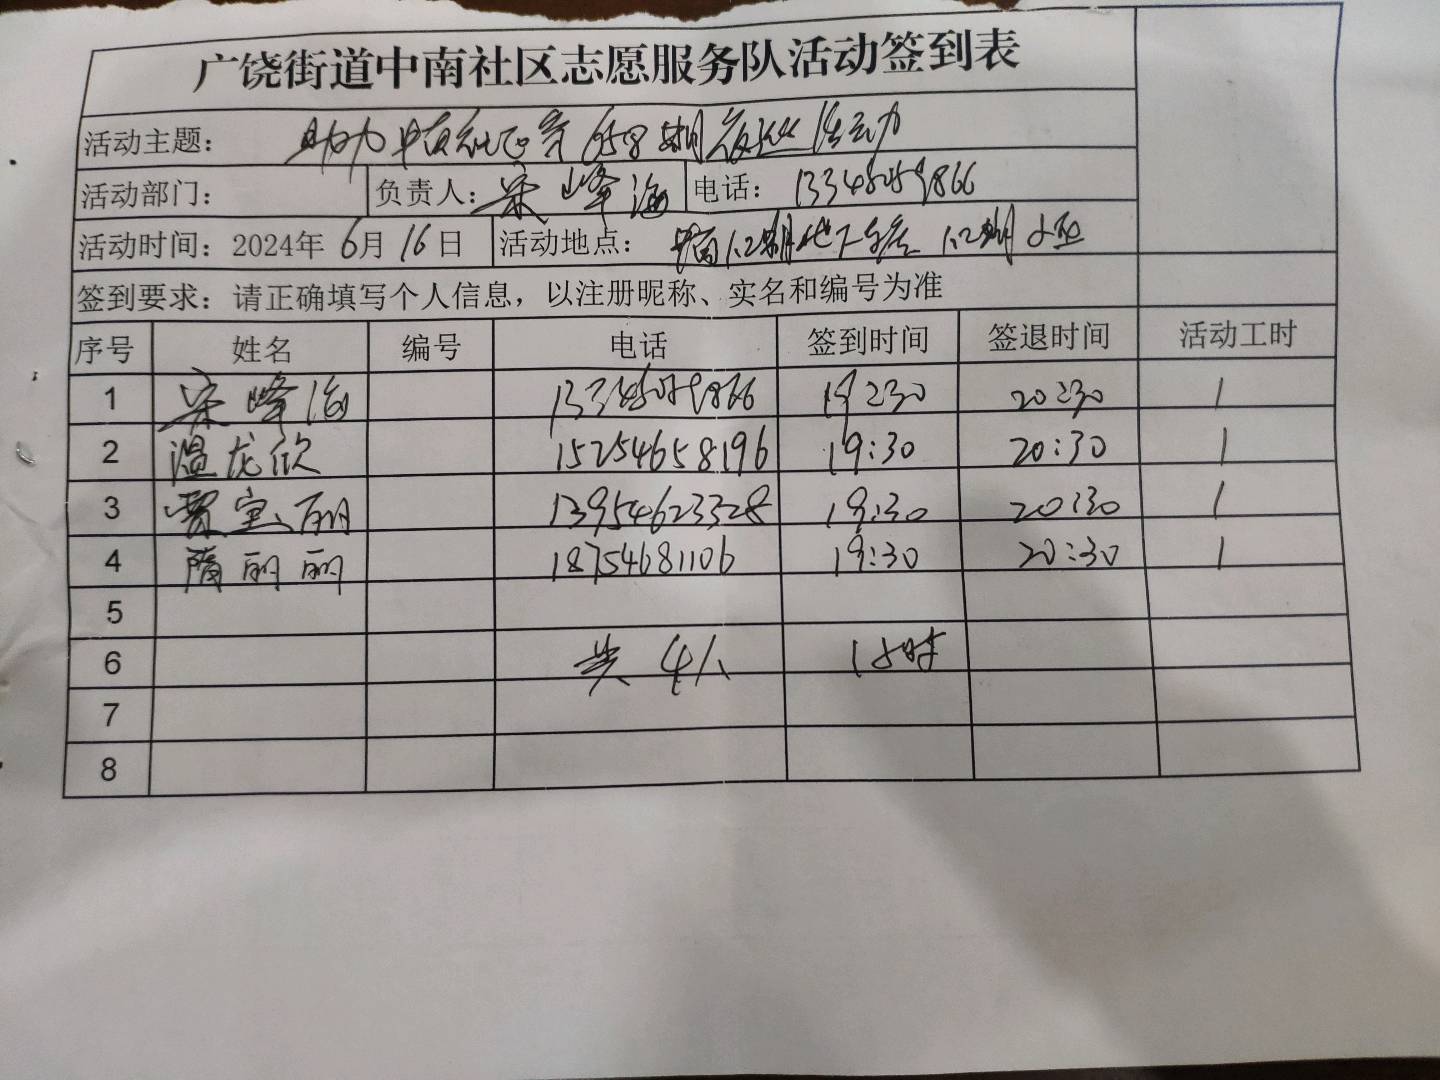 广饶街道中南社区志愿服务队活动签到表
活动主题： 助力中南社区 第658期 活动
活动部门： 负责人：宋峰海 电话：
活动时间：2024年6月16日 活动地点： 1.2期地下车库 1.2期小区
签到要求：请正确填写个人信息，以注册昵称、实名和编号为准
序号 姓名 编号 电话 签到时间 签退时间 活动工时
1 宋峰海 19:30 20:30 1
2 温龙欣 15254658196 19:30 20:30 1
3 贾宝丽 13954623328 19:30 20:30 1
4 隋丽丽 18754681106 19:30 20:30 1
5
6 共4人 1小时
7
8